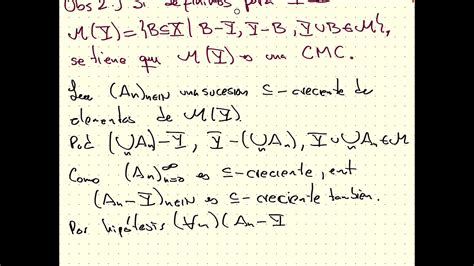 Obs 2.) Si definimos para Y
M(Y) = {B⊆X | B-Y, Y-B, Y∪B∈M},
se tiene que M(Y) es una CMC.
Sea (An)n∈IN una sucesión ⊆-creciente de
elementos de M(Y).
Pod (⋃n An)-Y, Y-(⋃n An), Y∪⋃n An∈M
Como (An)∞n=0 es ⊆-creciente, ent
(An-Y)n∈IN es ⊆-creciente también.
Por hipótesis (∀n)(An-Y